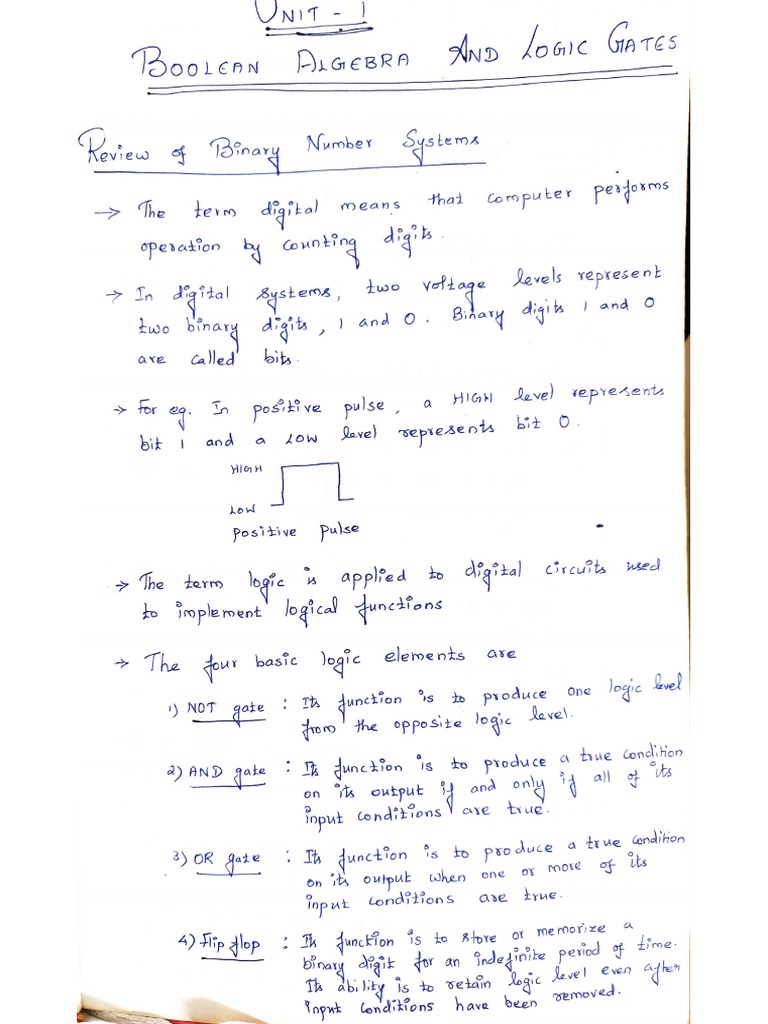 UNIT - 1
BOOLEAN ALGEBRA AND LOGIC GATES
Review of Binary Number Systems
→ The term digital means that computer performs
operation by counting digits.
→ In digital systems, two voltage levels represent
two binary digits, 1 and 0. Binary digits 1 and 0
are called bits.
→ For eg. In positive pulse, a HIGH level represents
bit 1 and a LOW level represents bit 0.
HIGH
LOW
positive pulse
→ The term logic is applied to digital circuits used
to implement logical functions
→ The four basic logic elements are
1) NOT gate : Its function is to produce one logic level
from the opposite logic level.
2) AND gate : Its function is to produce a true condition
on its output if and only if all of its
input conditions are true.
3) OR gate : Its function is to produce a true condition
on its output when one or more of its
input conditions are true.
4) Flip flop : Its function is to store or memorize a
binary digit for an indefinite period of time.
Its ability is to retain logic level even after
input conditions have been removed.